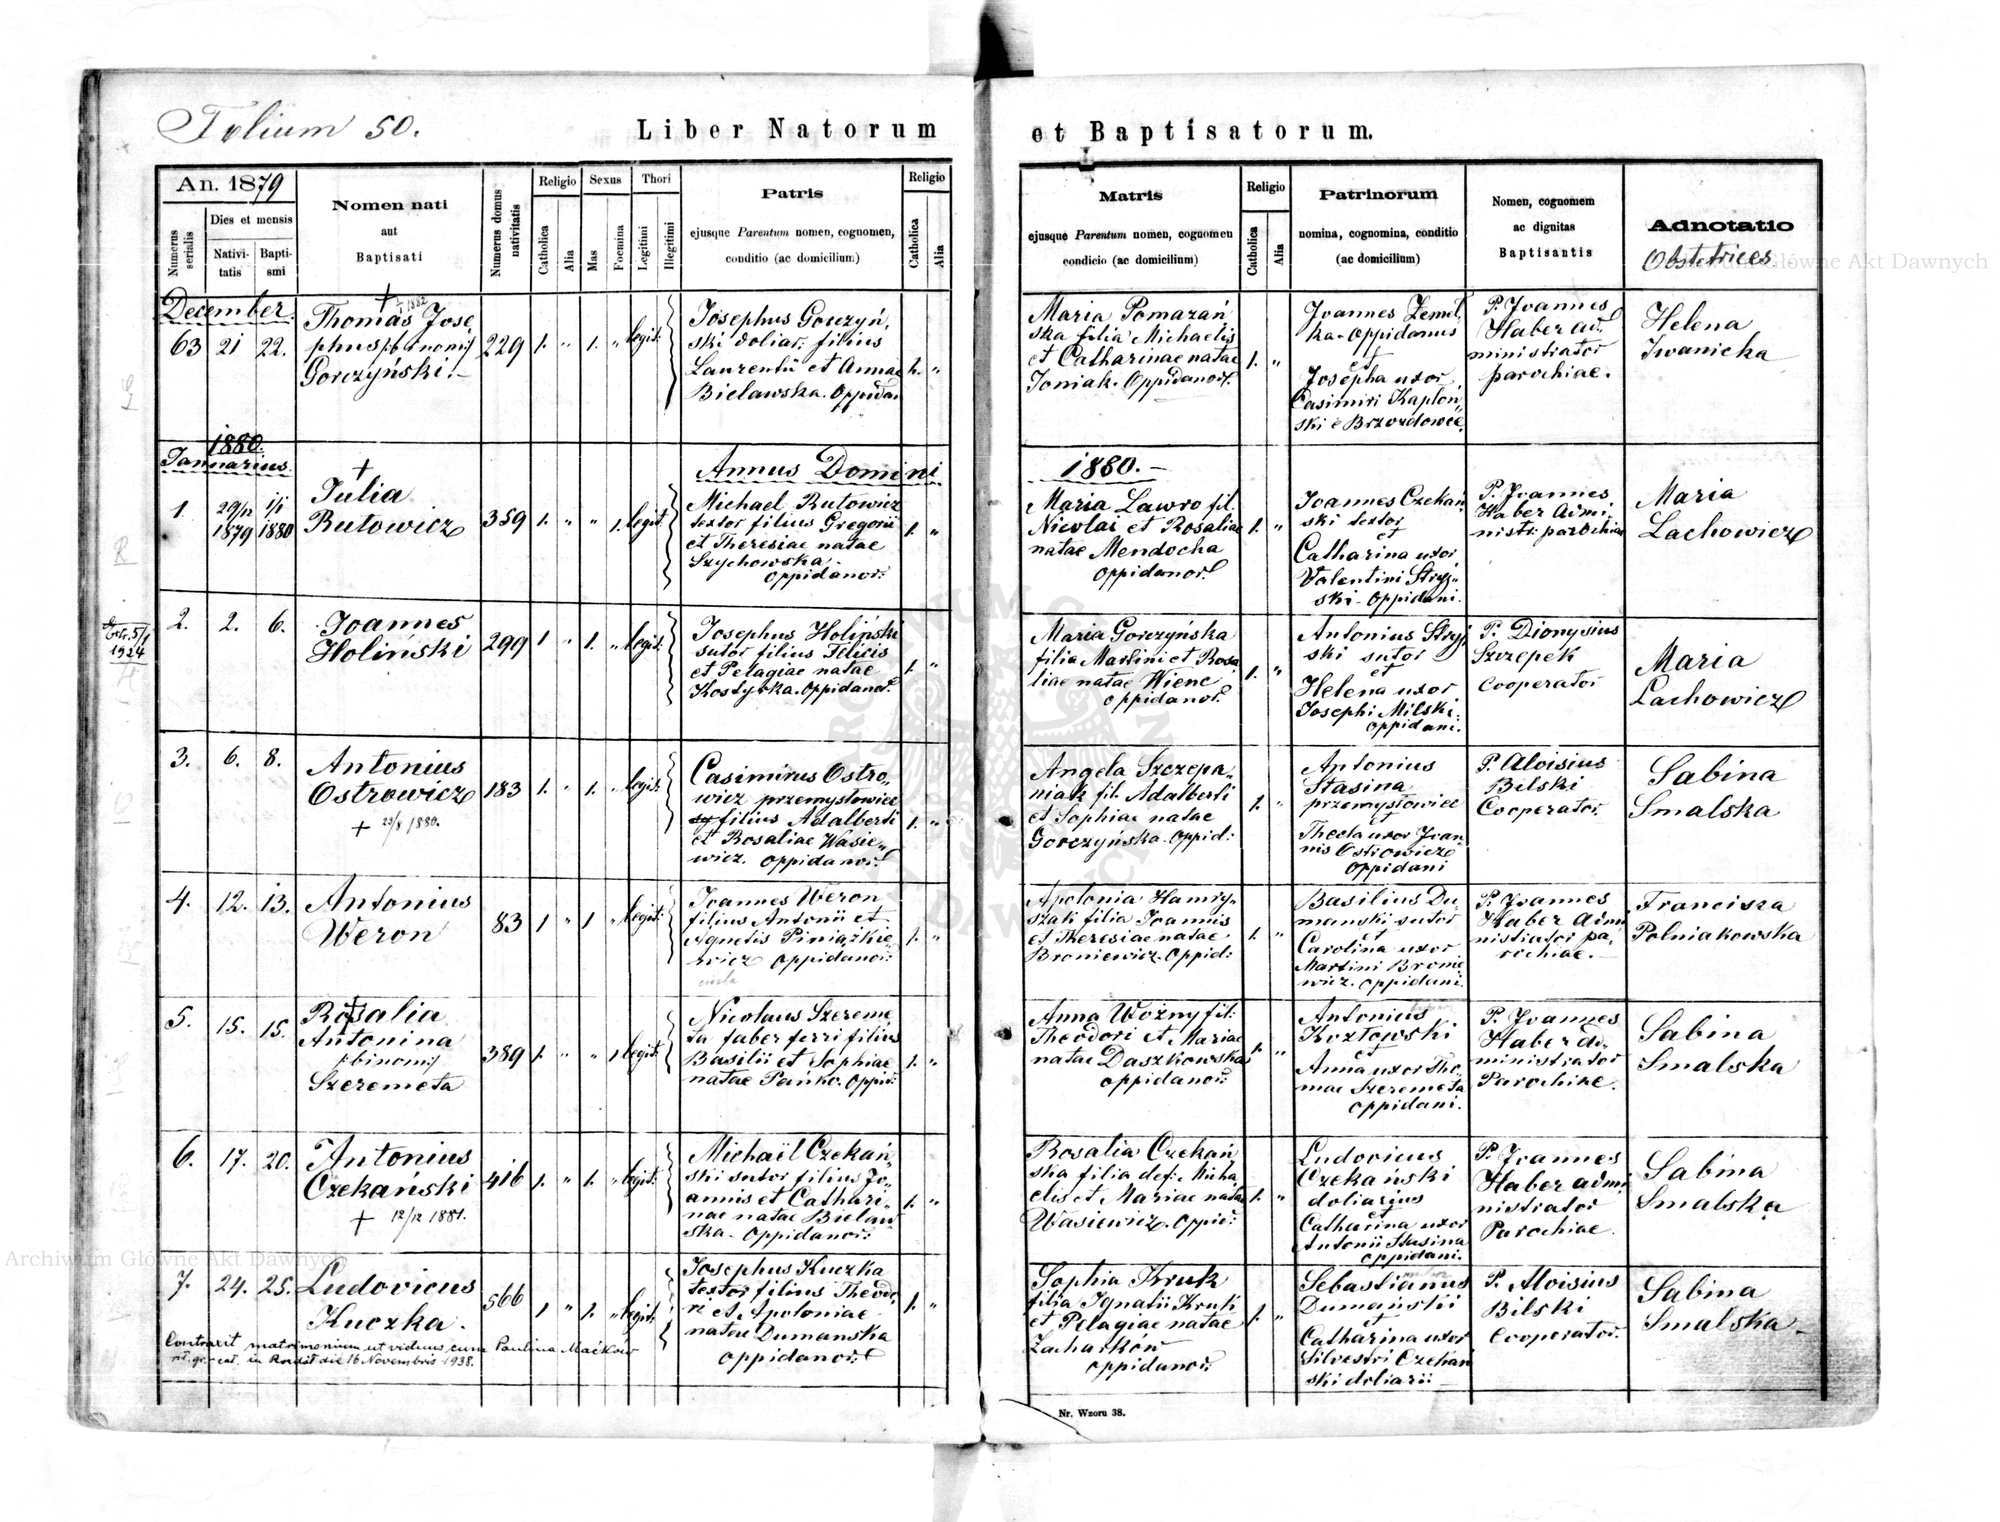 Folium 50.
Liber Natorum et Baptisatorum.
An. 1879
Numerus serialis
Dies et mensis
Nativitatis
Baptismi
Nomen nati
aut
Baptisati
Numerus domus nativitatis
Religio
Catholica
Alia
Sexus
Mas
Foemina
Thori
Legitimi
Illegitimi
Patris
ejusque Parentum nomen, cognomen,
conditio (ac domicilium)
Religio
Catholica
Alia
Matris
ejusque Parentum nomen, cognomen
condicio (ac domicilium)
Religio
Catholica
Alia
Patrinorum
nomina, cognomina, conditio
(ac domicilium)
Nomen, cognomem
ac dignitas
Baptisantis
Adnotatio
Obstetrices
December
63 21 22.
Thomas Jose
phus /:binom:/
Gorczyński.
229 1. " 1. " legit:
Josephus Gorczyń,
ski doliar. filius
Laurentii et Annae
Bielawska. Oppidan
1. "
Maria Pomazań
ska filia Michaelis
et Catharinae natae
Joniak. Oppidanor.
1. "
Joannes Zemel
ka. Oppidanus
et
Josepha uxor
Casimiri Kaplon
ski e Brzozdowce.
P. Joannes
Haber ad.
ministrator
parochiae.
Helena
Iwanicka
1880.
Januarius.
Annus Domini
1880.
1. 29/12 1879 1/1 1880
Julia
Rutowicz
359 1. " " 1. legit.
Michael Rutowicz
textor filius Gregorii
et Theresiae natae
Szychowska
oppidanor:
1. "
Maria Lawro fil.
Nicolai et Rosaliae
natae Mendocha
oppidanor.
1. "
Joannes Czekań
ski textor
et
Catharina uxor
Valentini Stryj
ski. Oppidani.
P. Joannes
Haber Admi
nistr: parochiae
Maria
Lachowicz
1924
2. 2. 6.
Joannes
Holiński
299 1 " 1. " legit:
Josephus Holiński
sutor filius Felicis
et Pelagiae natae
Kostyrka. Oppidanor.
1. "
Maria Gorczyńska
filia Martini et Rosa
liae natae Wienc
oppidanor.
1. "
Antonius Stryj
ski sutor
et
Helena uxor
Josephi Milski.
oppidani.
P. Dionysius
Szczepek
Cooperator
Maria
Lachowicz
3. 6. 8.
Antonius
Ostrowicz
+ 23/8 1880.
183 1. " 1. " legit:
Casimirus Ostro,
wicz przemysłowiec
filius Adalberti
et Rosaliae Wasie"
wicz. Oppidanor.
1. "
Angela Szczepa"
niak fil. Adalberti
et Sophiae natae
Gorczyńska. Oppid:
1. "
Antonius
Stasina
przemysłowiec
et
Thecla uxor Joan
nis Ostrowicz
oppidani
P. Aloisius
Bilski
Cooperator.
Sabina
Smalska
4. 12. 13.
Antonius
Weron
83 1 " 1 " legit:
Joannes Weron
filius Antonii et
Agnetis Piniążkie
wicz oppidanor:
1. "
Apolonia Hamry"
szak filia Joannis
et Theresiae natae
Broniewicz. Oppid:
1. "
Basilius Du
manski sutor
et
Carolina uxor
Martini Bronie
wicz. oppidani.
P. Joannes
Haber Admi
nistrator pa,
rochiae.
Francisza
Polniakowska
5. 15. 15.
Rosalia
Antonina
/:binom:/
Szeremeta
389 1. " " 1 legit:
Nicolaus Szereme
ta faber ferri filius
Basilii et Sophiae
natae Pańko. Oppid:
1. "
Anna Woźny fil:
Theodori et Mariae
natae Daszkowska
oppidanor:
1. "
Antonius
Kozłowski
et
Anna uxor Tho
mae Szeremeta
oppidani.
P. Joannes
Haber Ad"
ministrator
Parochiae.
Sabina
Smalska
6. 17. 20.
Antonius
Czekański
+ 12/12 1881.
416 1. " 1. " legit:
Michaël Czekań"
ski sutor filius Jo"
annis et Cathari"
nae natae Bielaw
ska. Oppidanor:
1. "
Rosalia Czekań
ska filia def: Micha
elis et Mariae natae
Wasiewicz. Oppid:
1. "
Ludovicus
Czekański
doliarius
et
Catharina uxor
Antonii Stasina
oppidani.
P. Joannes
Haber admi
nistrator
Parochiae.
Sabina
Smalska
7. 24. 25.
Ludovicus
Kuczka.
566 1 " 1. " legit:
Josephus Kuczka
textor filius Theodo,
ri et Apoloniae
natae Dumanska
oppidanor.
1. "
Sophia Kruk
filia Ignatii Kruk
et Pelagiae natae
Zacharków
oppidanor:
1. "
Sebastianus
Dumański
et
Catharina uxor
Silvestri Czekań
ski doliarii
P. Aloisius
Bilski
Cooperator.
Sabina
Smalska
Contraxit matrimonium ut viduus cum Paulina Maćków
rit. gr.-cat. in Rozdół die 16 Novembris 1938.
Nr. Wzoru 38.
Archiwum Główne Akt Dawnych